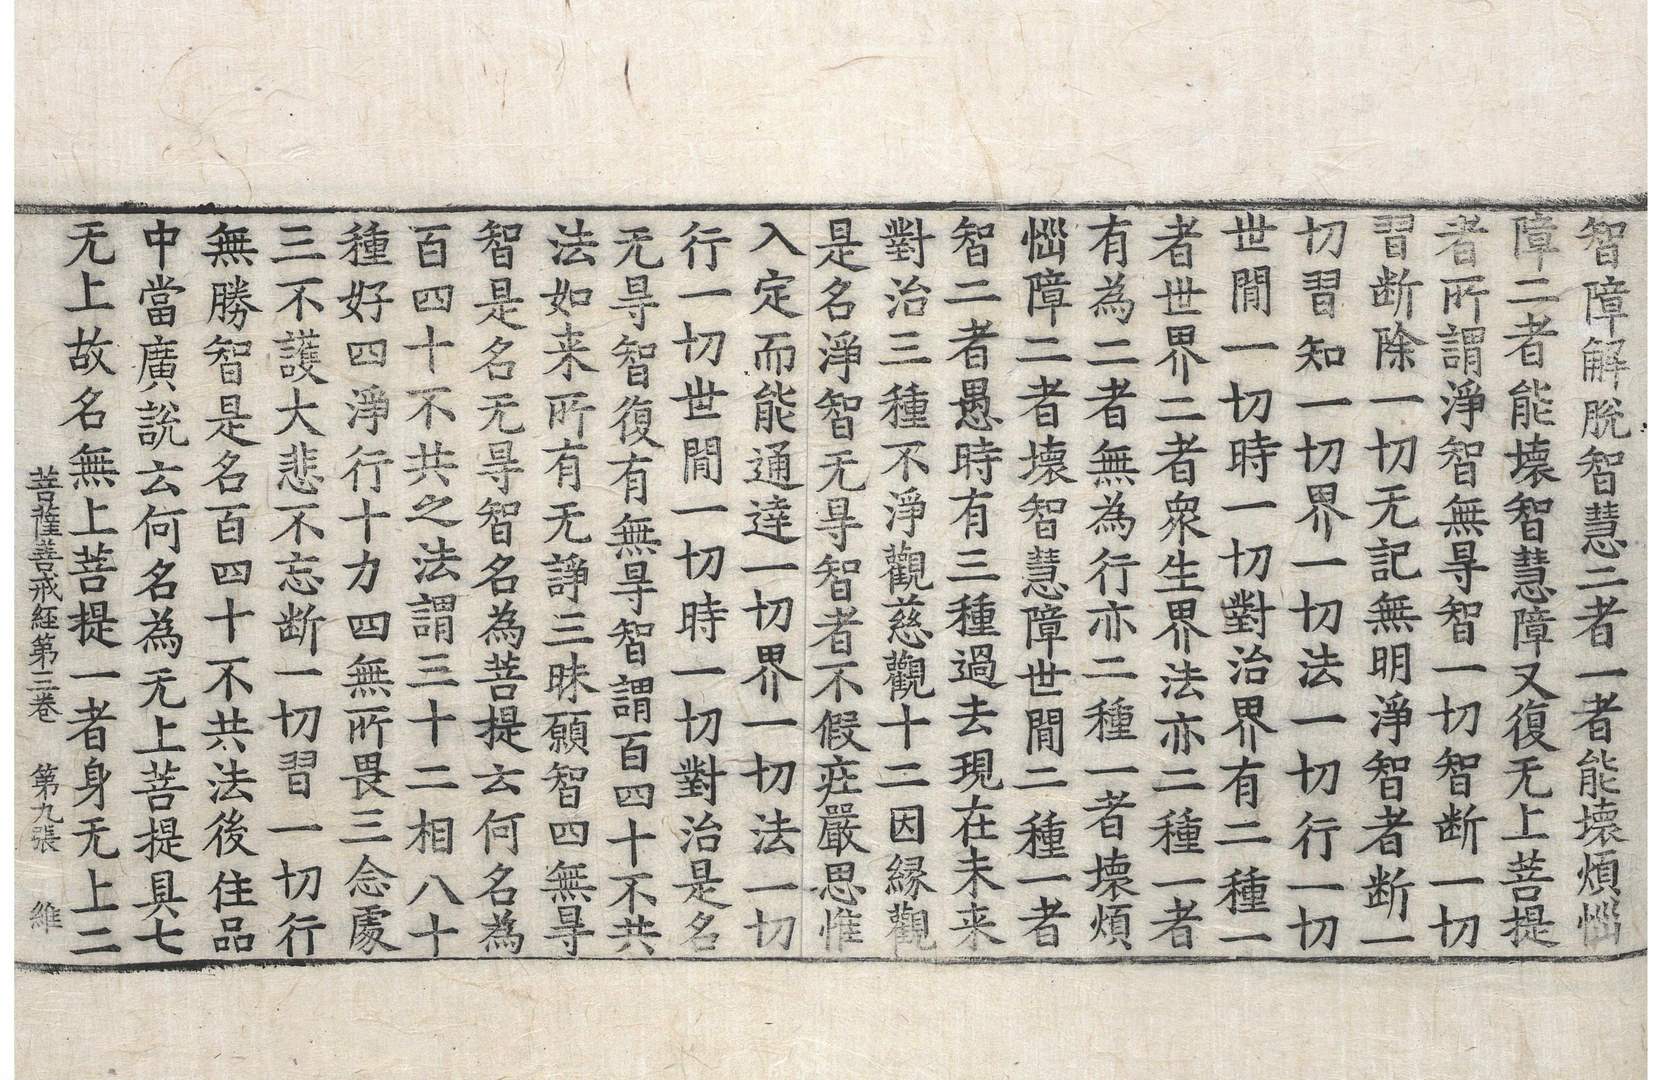 智障解脫智慧二者一者能壞煩惱
障二者能壞智慧障又復无上菩提
者所謂淨智無㝵智一切智断一切
習断除一切无記無明淨智者断一
切習知一切界一切法一切行一切
世間一切時一切對治界有二種一
者世界二者衆生界法亦二種一者
有為二者無為行亦二種一者壞煩
惱障二者壞智慧障世間二種一者
智二者愚時有三種過去現在未来
對治三種不淨觀慈觀十二因縁觀
是名淨智无㝵智者不假㽵嚴思惟
入定而能通達一切界一切法一切
行一切世間一切時一切對治是名
无㝵智復有無㝵智謂百四十不共
法如来所有无諍三昧願智四無㝵
智是名无㝵智名為菩提云何名為
百四十不共之法謂三十二相八十
種好四淨行十力四無所畏三念處
三不護大悲不忘断一切習一切行
無勝智是名百四十不共法後住品
中當廣說云何名為无上菩提具七
无上故名無上菩提一者身无上二
菩薩善戒経第三卷 第九張 維